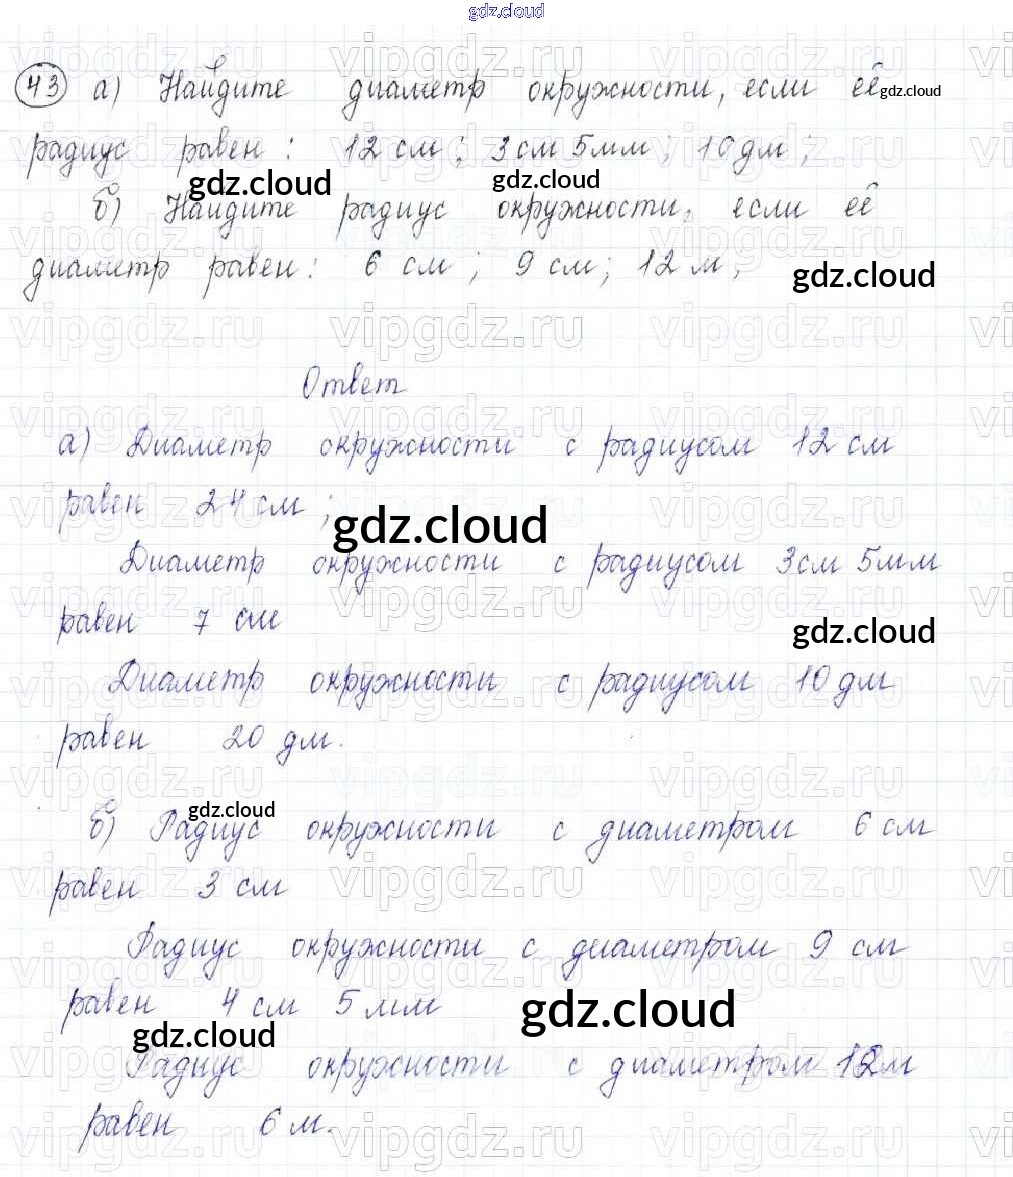 gdz.cloud
43 а) Найдите диаметр окружности, если её gdz.cloud
радиус равен: 12 см; 3 см 5 мм; 10 дм;
gdz.cloud gdz.cloud
б) Найдите радиус окружности, если её
диаметр равен: 6 см; 9 см; 12 м;
gdz.cloud
vipgdz.ru vipgdz.ru vipgdz.ru
Ответ
а) Диаметр окружности с радиусом 12 см
равен 24 см;
gdz.cloud
Диаметр окружности с радиусом 3 см 5 мм
равен 7 см
gdz.cloud
Диаметр окружности с радиусом 10 дм
равен 20 дм.
gdz.cloud
б) Радиус окружности с диаметром 6 см
равен 3 см
Радиус окружности с диаметром 9 см
равен 4 см 5 мм
gdz.cloud
gdz.cloud
Радиус окружности с диаметром 12 м
равен 6 м.